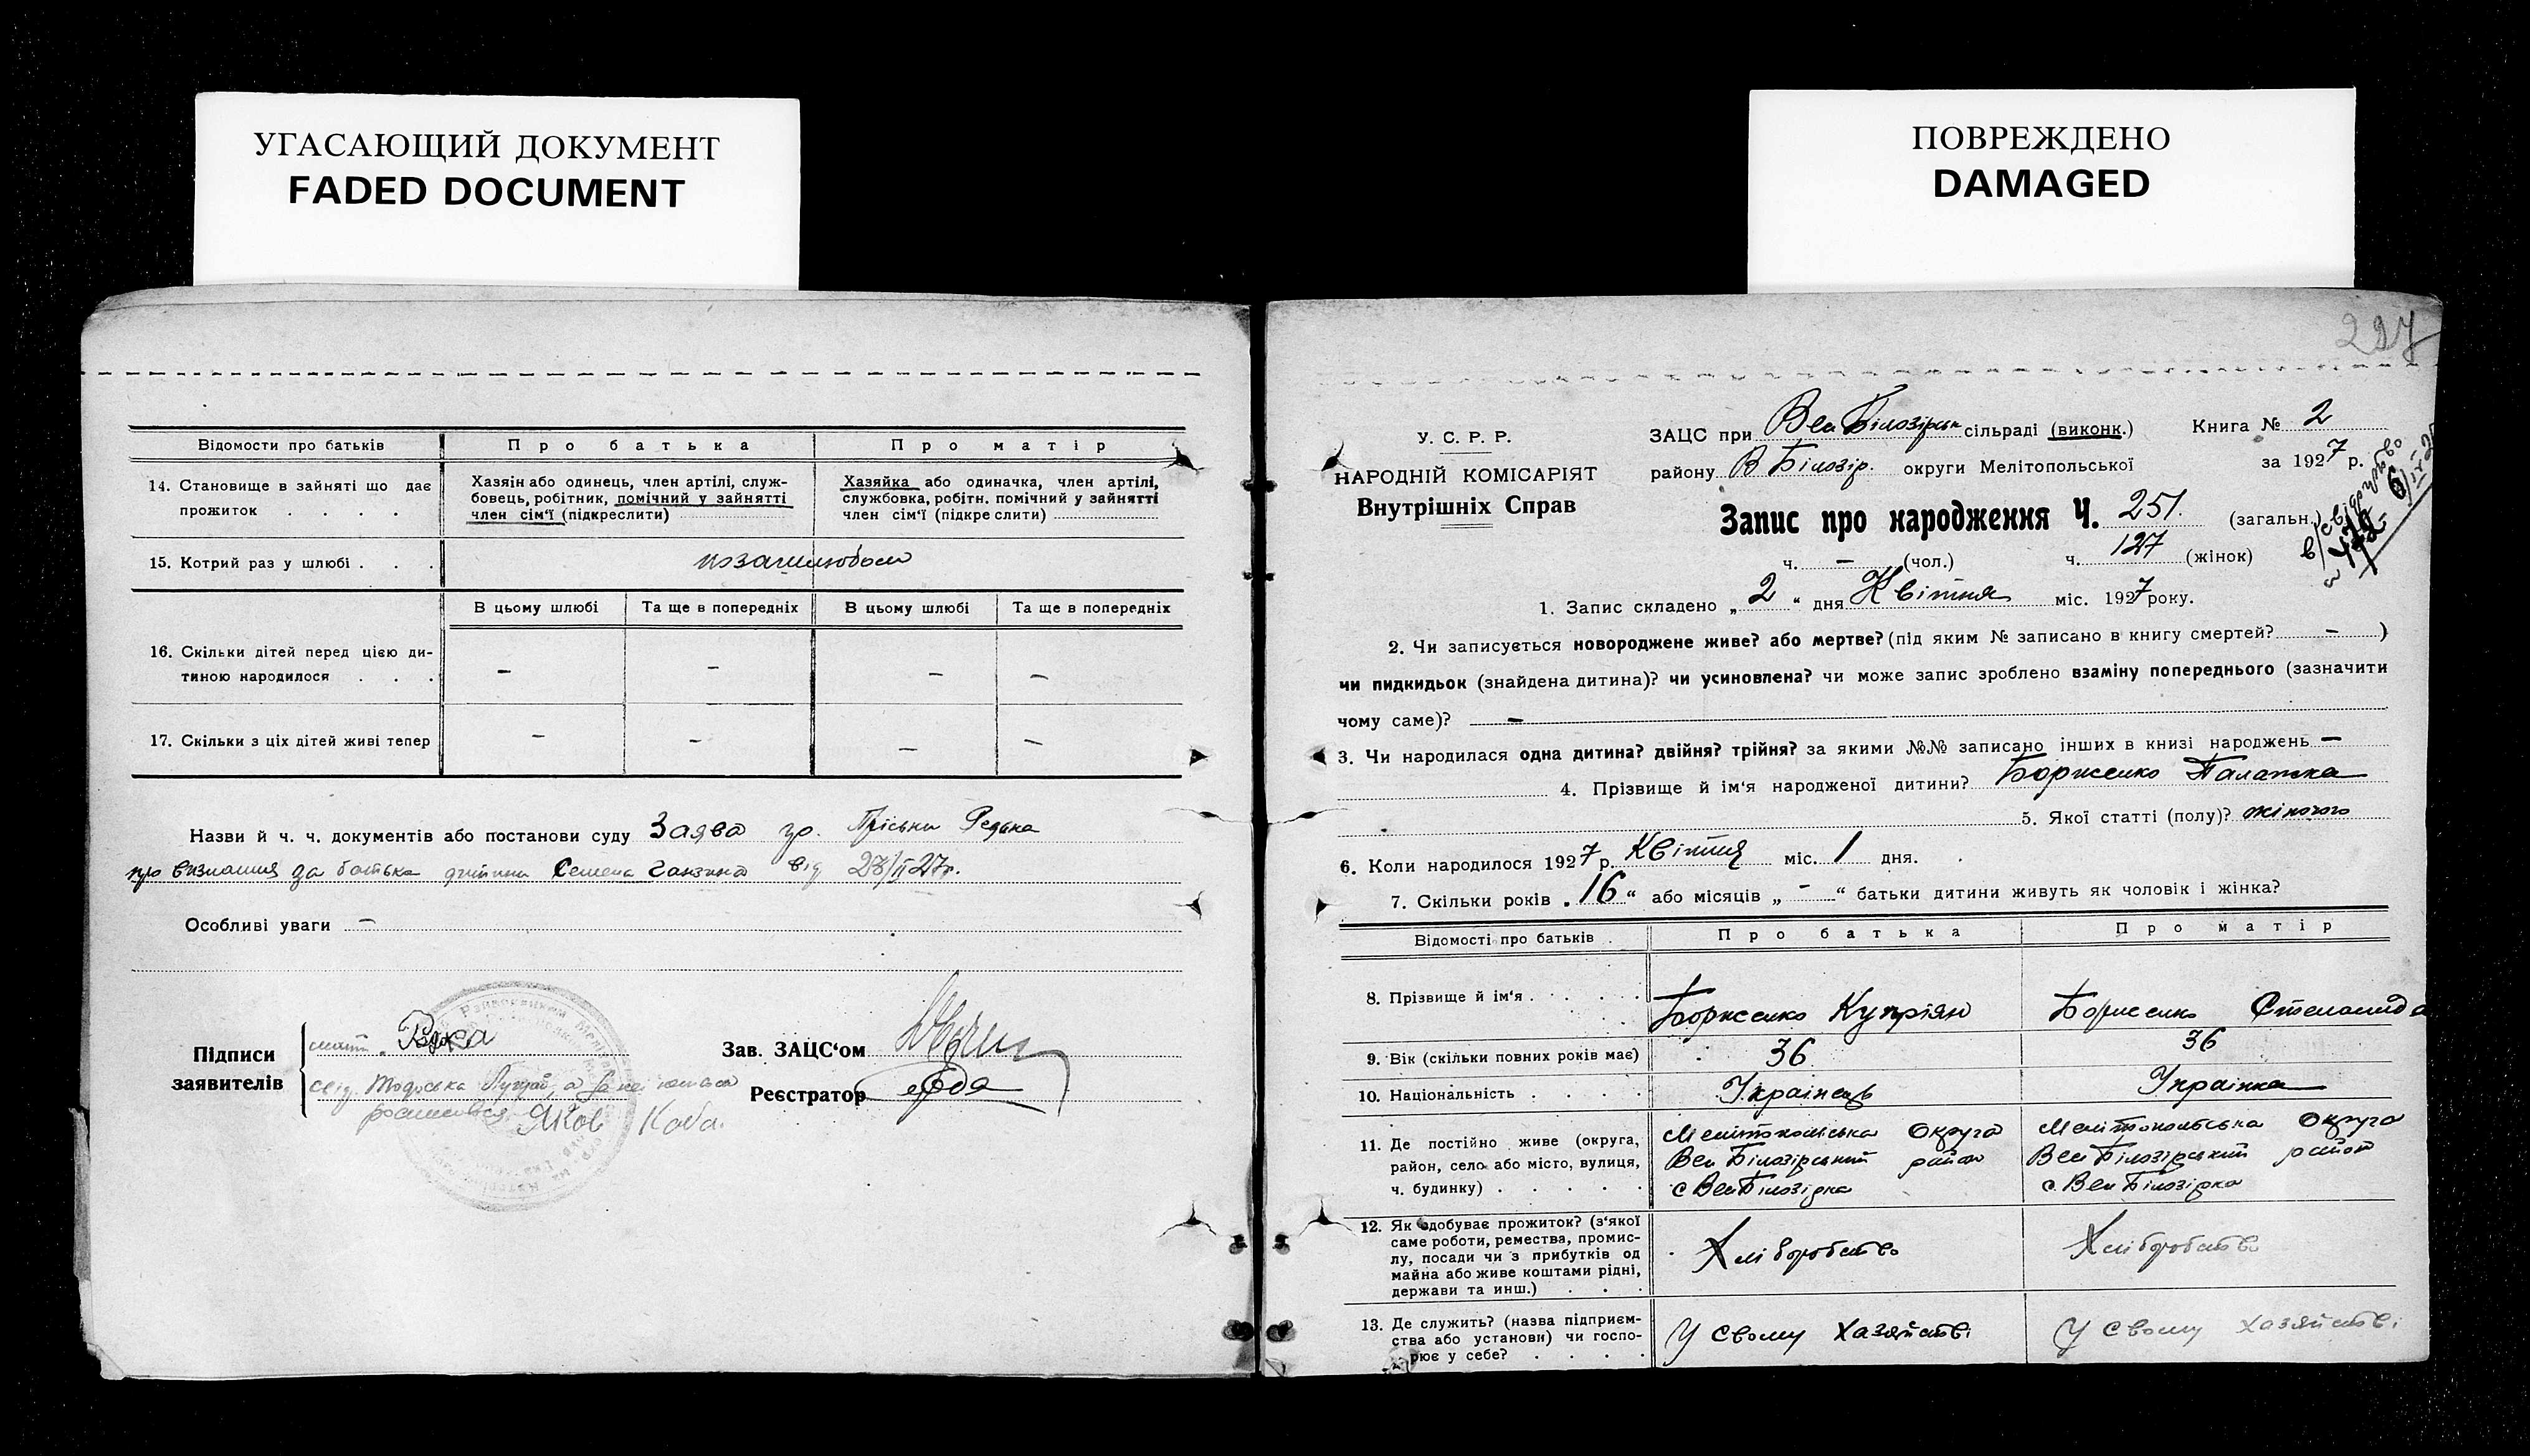 УГАСАЮЩИЙ ДОКУМЕНТ
FADED DOCUMENT
ПОВРЕЖДЕНО
DAMAGED
Відомости про батьків
Про батька
Про матір
14. Становище в зайняті що дає
прожиток . . . .
Хазяїн або одинець, член артілі, служ-
бовець, робітник, помічний у зайнятті
член сім'ї (підкреслити)
Хазяйка або одиначка, член артілі,
службовка, робітн. помічний у зайнятті
член сім'ї (підкреслити)
15. Котрий раз у шлюбі . . .
позашлюбом
В цьому шлюбі
Та ще в попередніх
В цьому шлюбі
Та ще в попередніх
16. Скільки дітей перед цією ди-
тиною народилося . . .
— — — —
17. Скільки з ціх дітей живі тепер
— — — —
Назви й ч. ч. документів або постанови суду Заява гр. Пріськи
про визнання за батька дитини Семена від 28/II 27р.
Особливі уваги —
Підписи
заявителів
Зав. ЗАЦС'ом
Реєстратор
Яков Каба.
297
У. С. Р. Р.
НАРОДНІЙ КОМІСАРІЯТ
Внутрішніх Справ
ЗАЦС при Вел Білозірськ сільраді (виконк.) Книга № 2
району В Білозір. округи Мелітопольської за 1927 р.
Запис про народження Ч. 251. (загальн.)
ч. — (чол.) ч. 127 (жінок)
1. Запис складено „2“ дня Квітня міс. 1927 року.
2. Чи записується новороджене живе? або мертве? (під яким № записано в книгу смертей? — )
чи пидкидьок (знайдена дитина)? чи усиновлена? чи може запис зроблено взаміну попереднього (зазначити
чому саме)? —
3. Чи народилася одна дитина? двійня? трійня? за якими №№ записано інших в книзі народжень —
4. Прізвище й ім'я народженої дитини? Борисенко Палажка
5. Якої статті (полу)? жіночого
6. Коли народилося 1927 р. Квітня міс. 1 дня.
7. Скільки років „16“ або місяців „-“ батьки дитини живуть як чоловік і жінка?
Відомості про батьків
Про батька
Про матір
8. Прізвище й ім'я . . . . .
Борисенко Купріян
Борисенко Степанида
9. Вік (скільки повних років має)
36
36
10. Національність . . . .
Українець
Українка
11. Де постійно живе (округа,
район, село або місто, вулиця,
ч. будинку) . . . . .
Мелітопольська Округа
Вел Білозірський район
с Вел Білозірка
Мелітопольська Округа
Вел Білозірський район
с. Вел Білозірка
12. Як здобуває прожиток? (з'якої
саме роботи, ремества, промис-
лу, посади чи з прибутків од
майна або живе коштами рідні,
держави та инш.) . . .
Хліборобство
Хліборобство
13. Де служить? (назва підприєм-
ства або установи) чи госпо-
рює у себе? . . . .
У свому хазяйстві
У свому хазяйстві